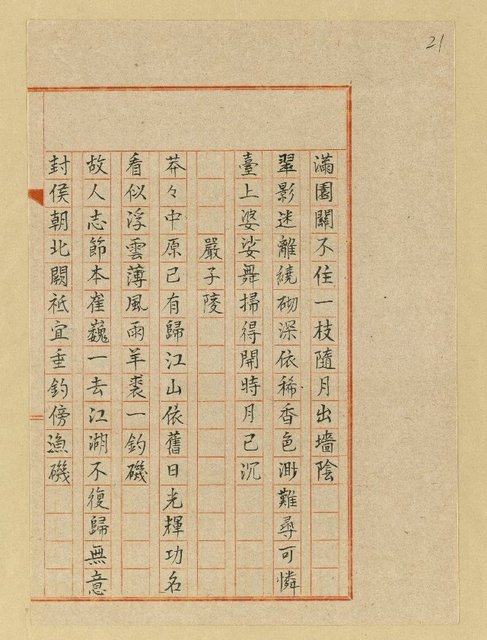 21
滿園關不住一枝隨月出墻陰
翠影迷離繞砌深依稀香色渺難尋可憐
臺上婆娑舞掃得開時月已沉
嚴子陵
莽々中原已有歸江山依舊日光輝功名
看似浮雲薄風雨羊裘一釣磯
故人志節本崔巍一去江湖不復歸無意
封侯朝北闕祗宜垂釣傍漁磯